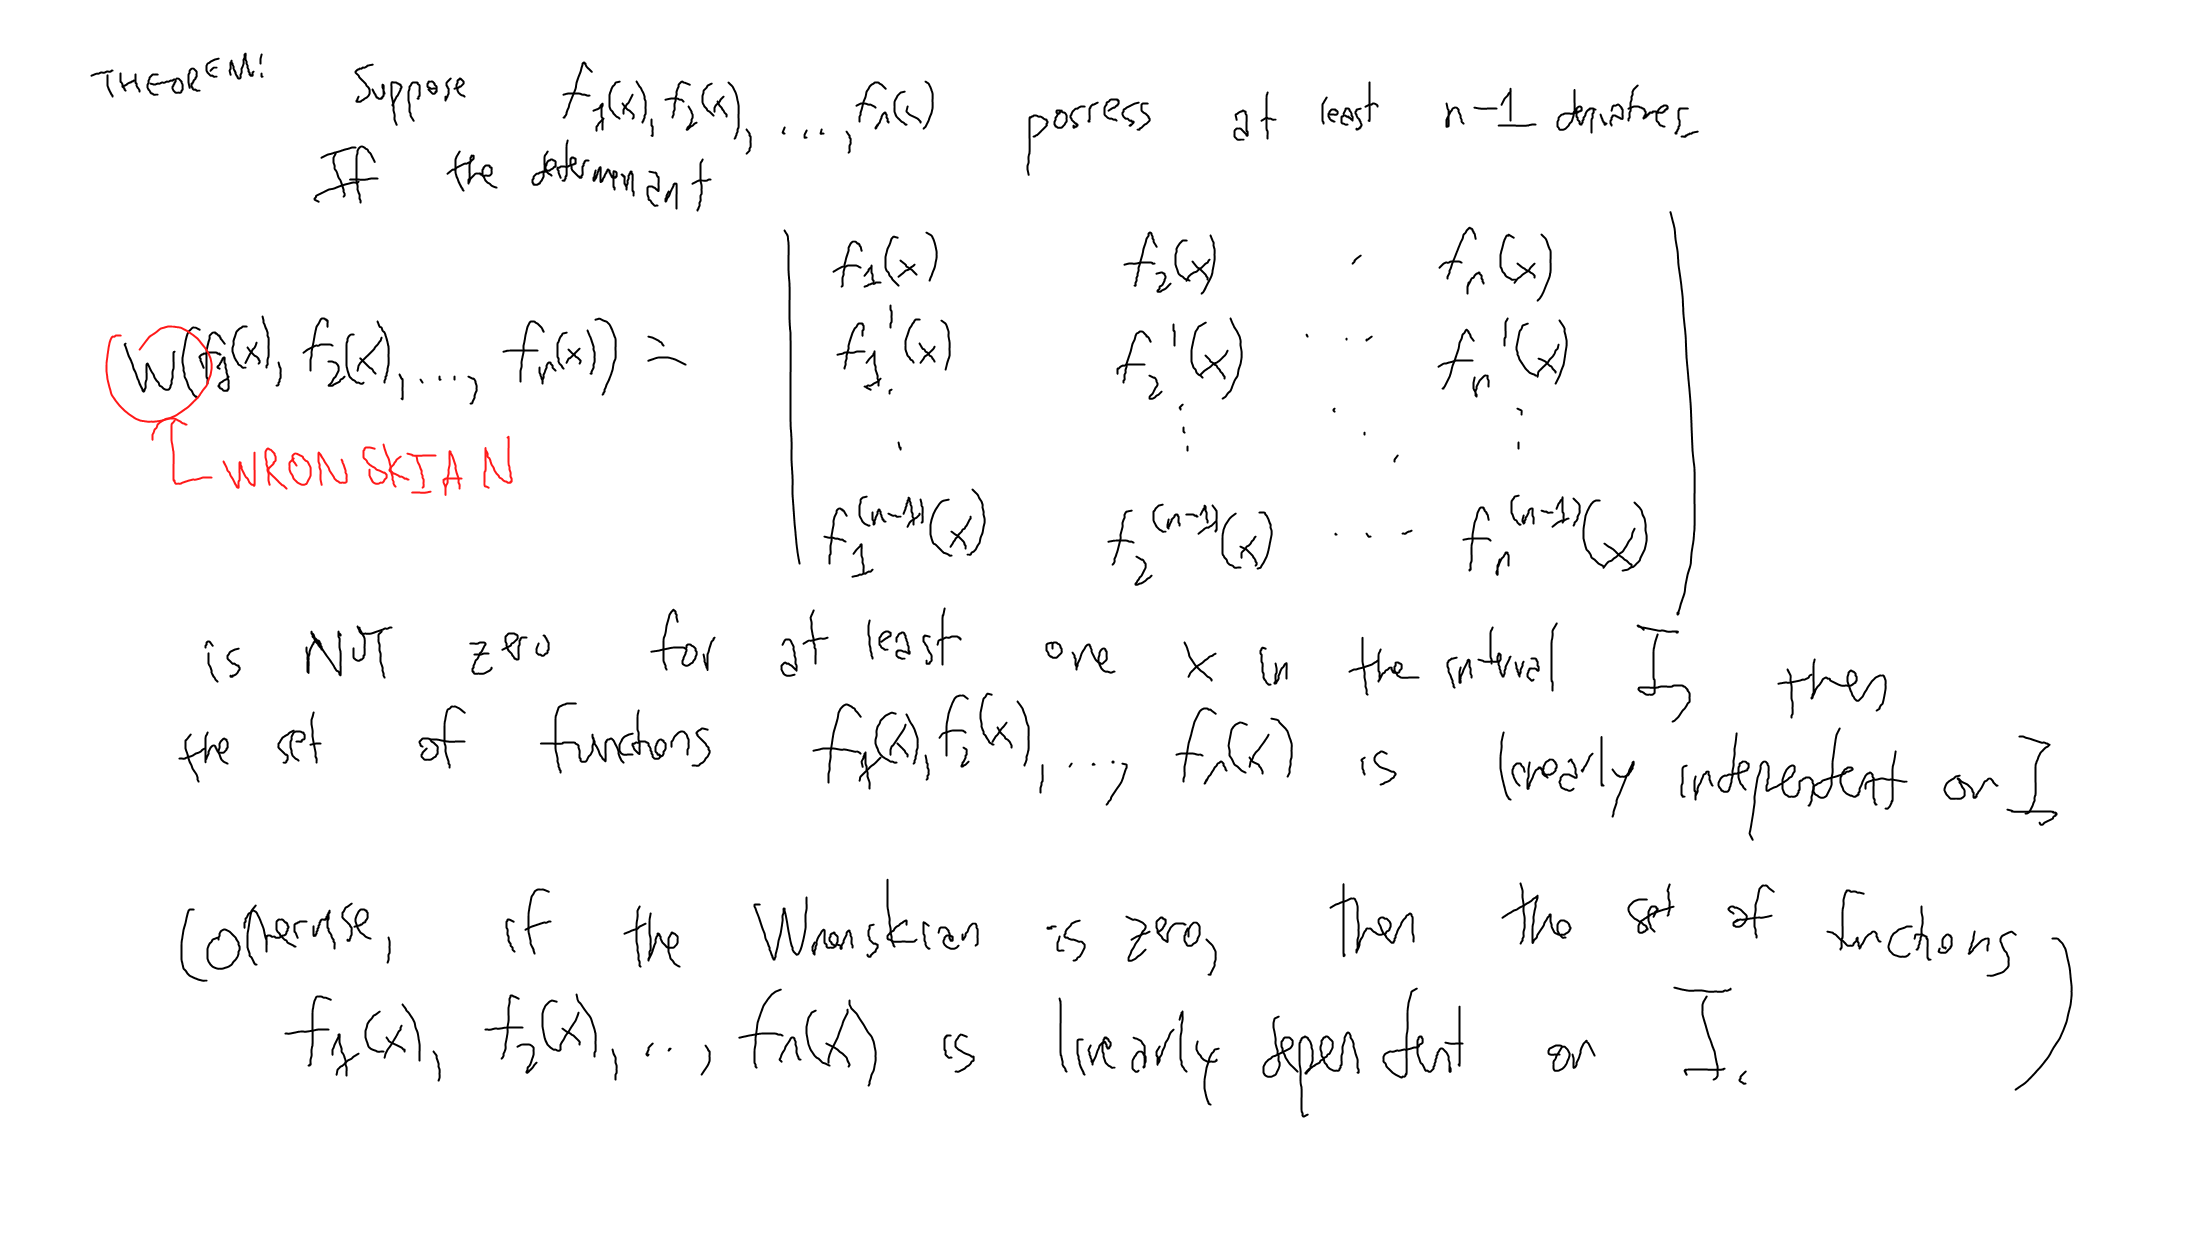 THEOREM: Suppose f₁(x), f₂(x), ..., fₙ(x) possess at least n-1 derivatives.
If the determinant
W(f₁(x), f₂(x), ..., fₙ(x)) =
f₁(x) f₂(x) · fₙ(x)
f₁'(x) f₂'(x) ... fₙ'(x)
⋮ ⋮ ⋱ ⋮
f₁⁽ⁿ⁻¹⁾(x) f₂⁽ⁿ⁻¹⁾(x) ... fₙ⁽ⁿ⁻¹⁾(x)
WRONSKIAN
is NOT zero for at least one x in the interval I, then
the set of functions f₁(x), f₂(x), ..., fₙ(x) is linearly independent on I.
(Otherwise, if the Wronskian is zero, then the set of functions
f₁(x), f₂(x), ..., fₙ(x) is linearly dependent on I.)